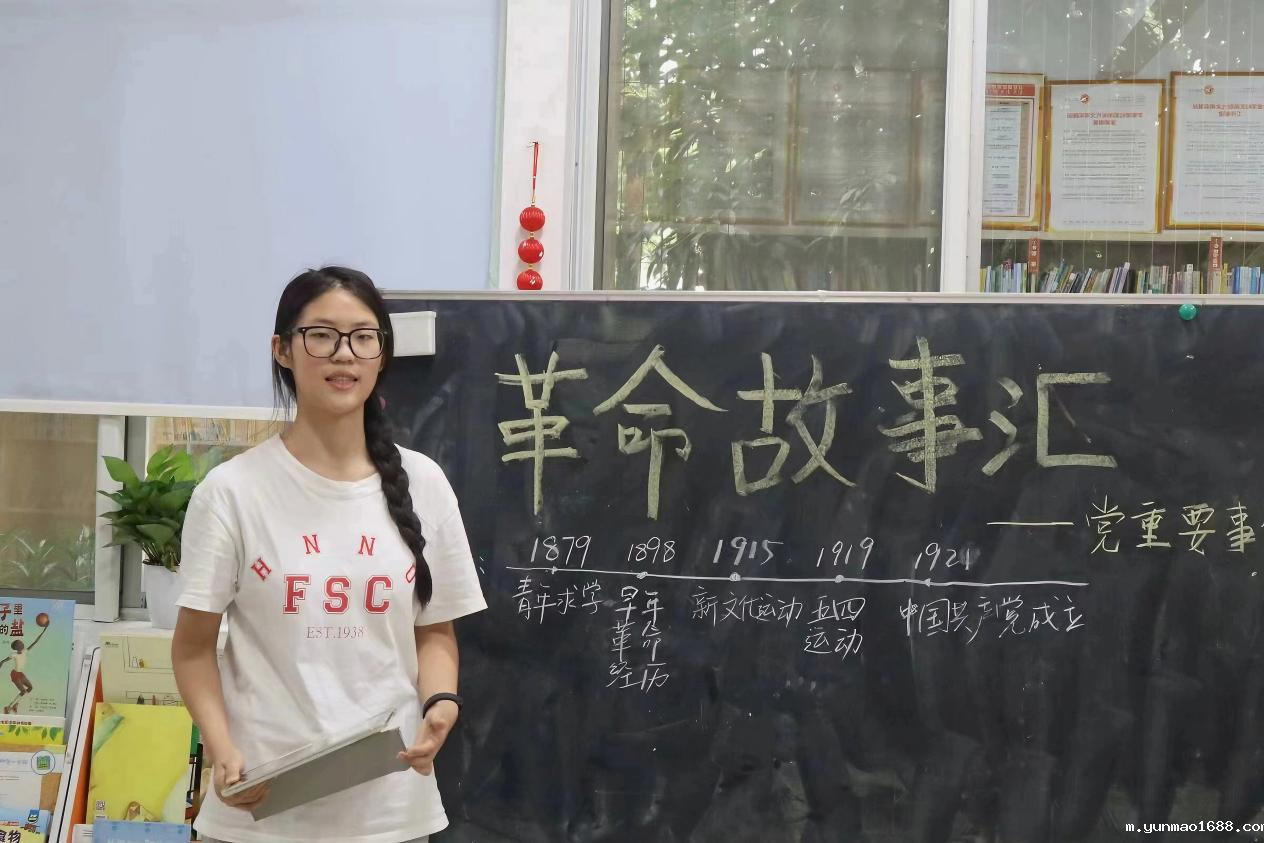 革命故事汇
——党重要事
1879 1898 1915 1919 1921
青年求学 早年革命经历 新文化运动 五四运动 中国共产党成立
HNN
FSC
EST.1938
子里
的盐
食物
m.yunmao1688.com